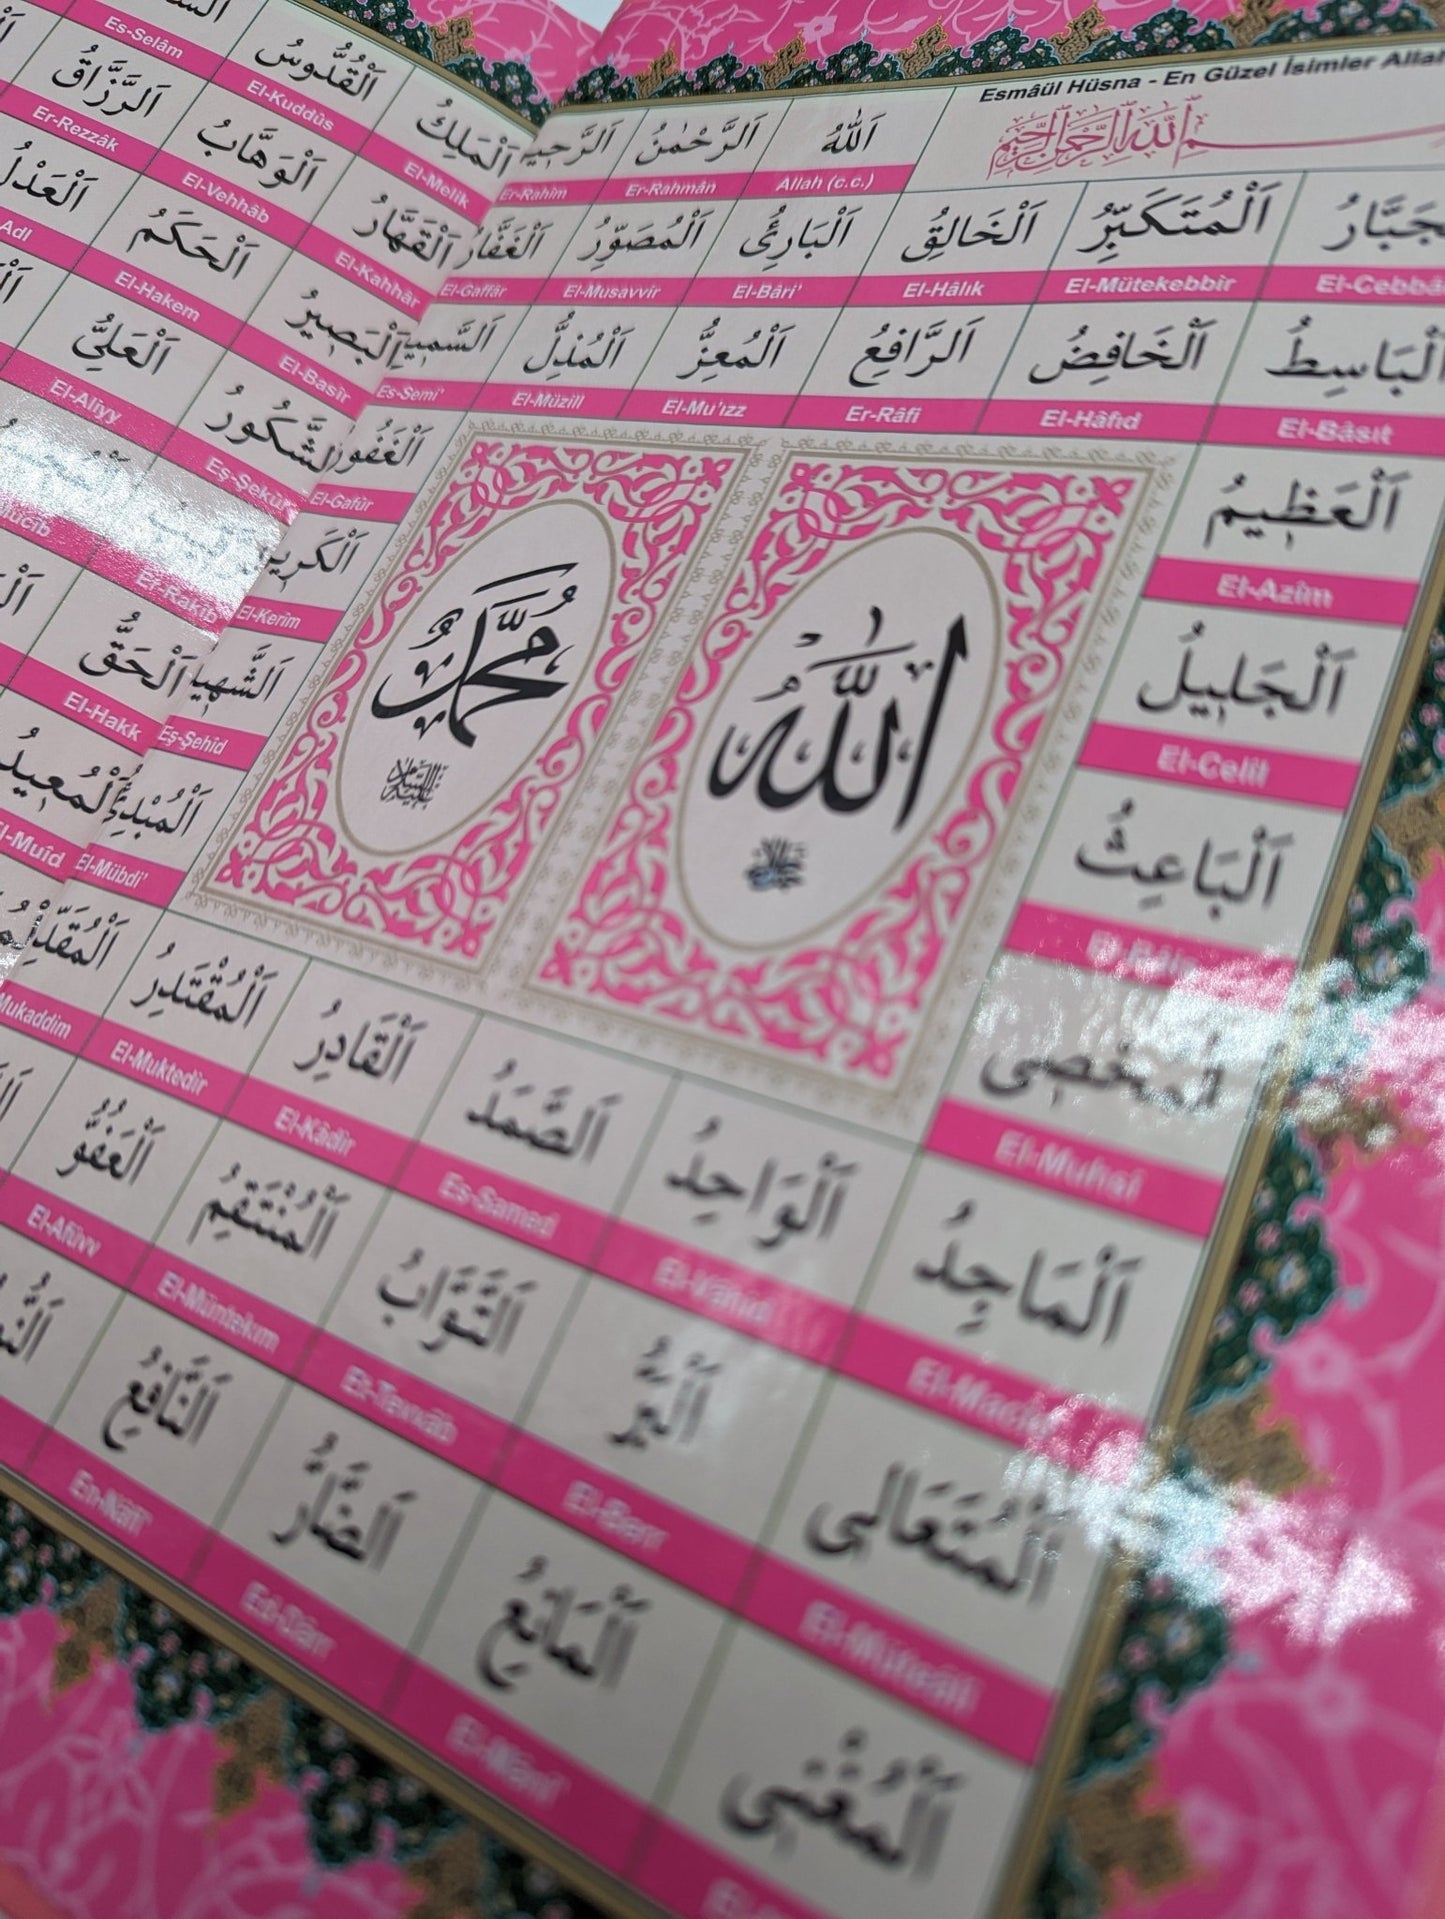 Esmâül Hüsna - En Güzel İsimler Allah
بِسْمِ اللهِ الرَّحْمٰنِ الرَّحِيمِ
اَللّٰهُ
Allah (c.c.)
اَلرَّحْمٰنُ
Er-Rahmân
Er-Rahîm
اَلْمَلِكُ
El-Melik
اَلْقُدُّوسُ
El-Kuddûs
Es-Selâm
El-Cebbâ
اَلْمُتَكَبِّرُ
El-Mütekebbir
اَلْخَالِقُ
El-Hâlık
اَلْبَارِئُ
El-Bâri'
اَلْمُصَوِّرُ
El-Musavvir
اَلْغَفَّارُ
El-Gaffâr
اَلْقَهَّارُ
El-Kahhâr
اَلْوَهَّابُ
El-Vehhâb
اَلرَّزَّاقُ
Er-Rezzâk
اَلْبَاسِطُ
El-Bâsıt
اَلْخَافِضُ
El-Hâfıd
اَلرَّافِعُ
Er-Râfi
اَلْمُعِزُّ
El-Mu'ızz
اَلْمُذِلُّ
El-Müzill
Es-Semi'
اَلْبَصِيرُ
El-Basîr
اَلْحَكَمُ
El-Hakem
اَلْعَدْلُ
Adl
اَلْعَظِيمُ
El-Azîm
El-Gafûr
اَلشَّكُورُ
Eş-Şekûr
اَلْعَلِيُّ
El-Aliyy
اَلْجَلِيلُ
El-Celîl
El-Kerîm
Er-Rakîb
مُحَمَّدٌ
عليه السلام
اَللّٰهُ
جل جلاله
اَلْبَاعِثُ
Eş-Şehîd
اَلْحَقُّ
El-Hakk
El-Muhsi
اَلْمُبْدِئُ
El-Mübdi'
اَلْمُعِيدُ
El-Muîd
اَلْمَاجِدُ
اَلْوَاحِدُ
El-Vâhid
اَلصَّمَدُ
Es-Samed
اَلْقَادِرُ
El-Kâdir
اَلْمُقْتَدِرُ
El-Muktedir
Mukaddim
اَلْمُتَعَالِى
El-Müteâli
اَلْبَرُّ
El-Berr
اَلتَّوَّابُ
Et-Tevvâb
اَلْمُنْتَقِمُ
El-Müntekım
اَلْعَفُوُّ
El-Afüvv
اَلْمُغْنِى
اَلْمَانِعُ
El-Mâni'
اَلضَّارُّ
Ed-Dârr
اَلنَّافِعُ
En-Nâfi'